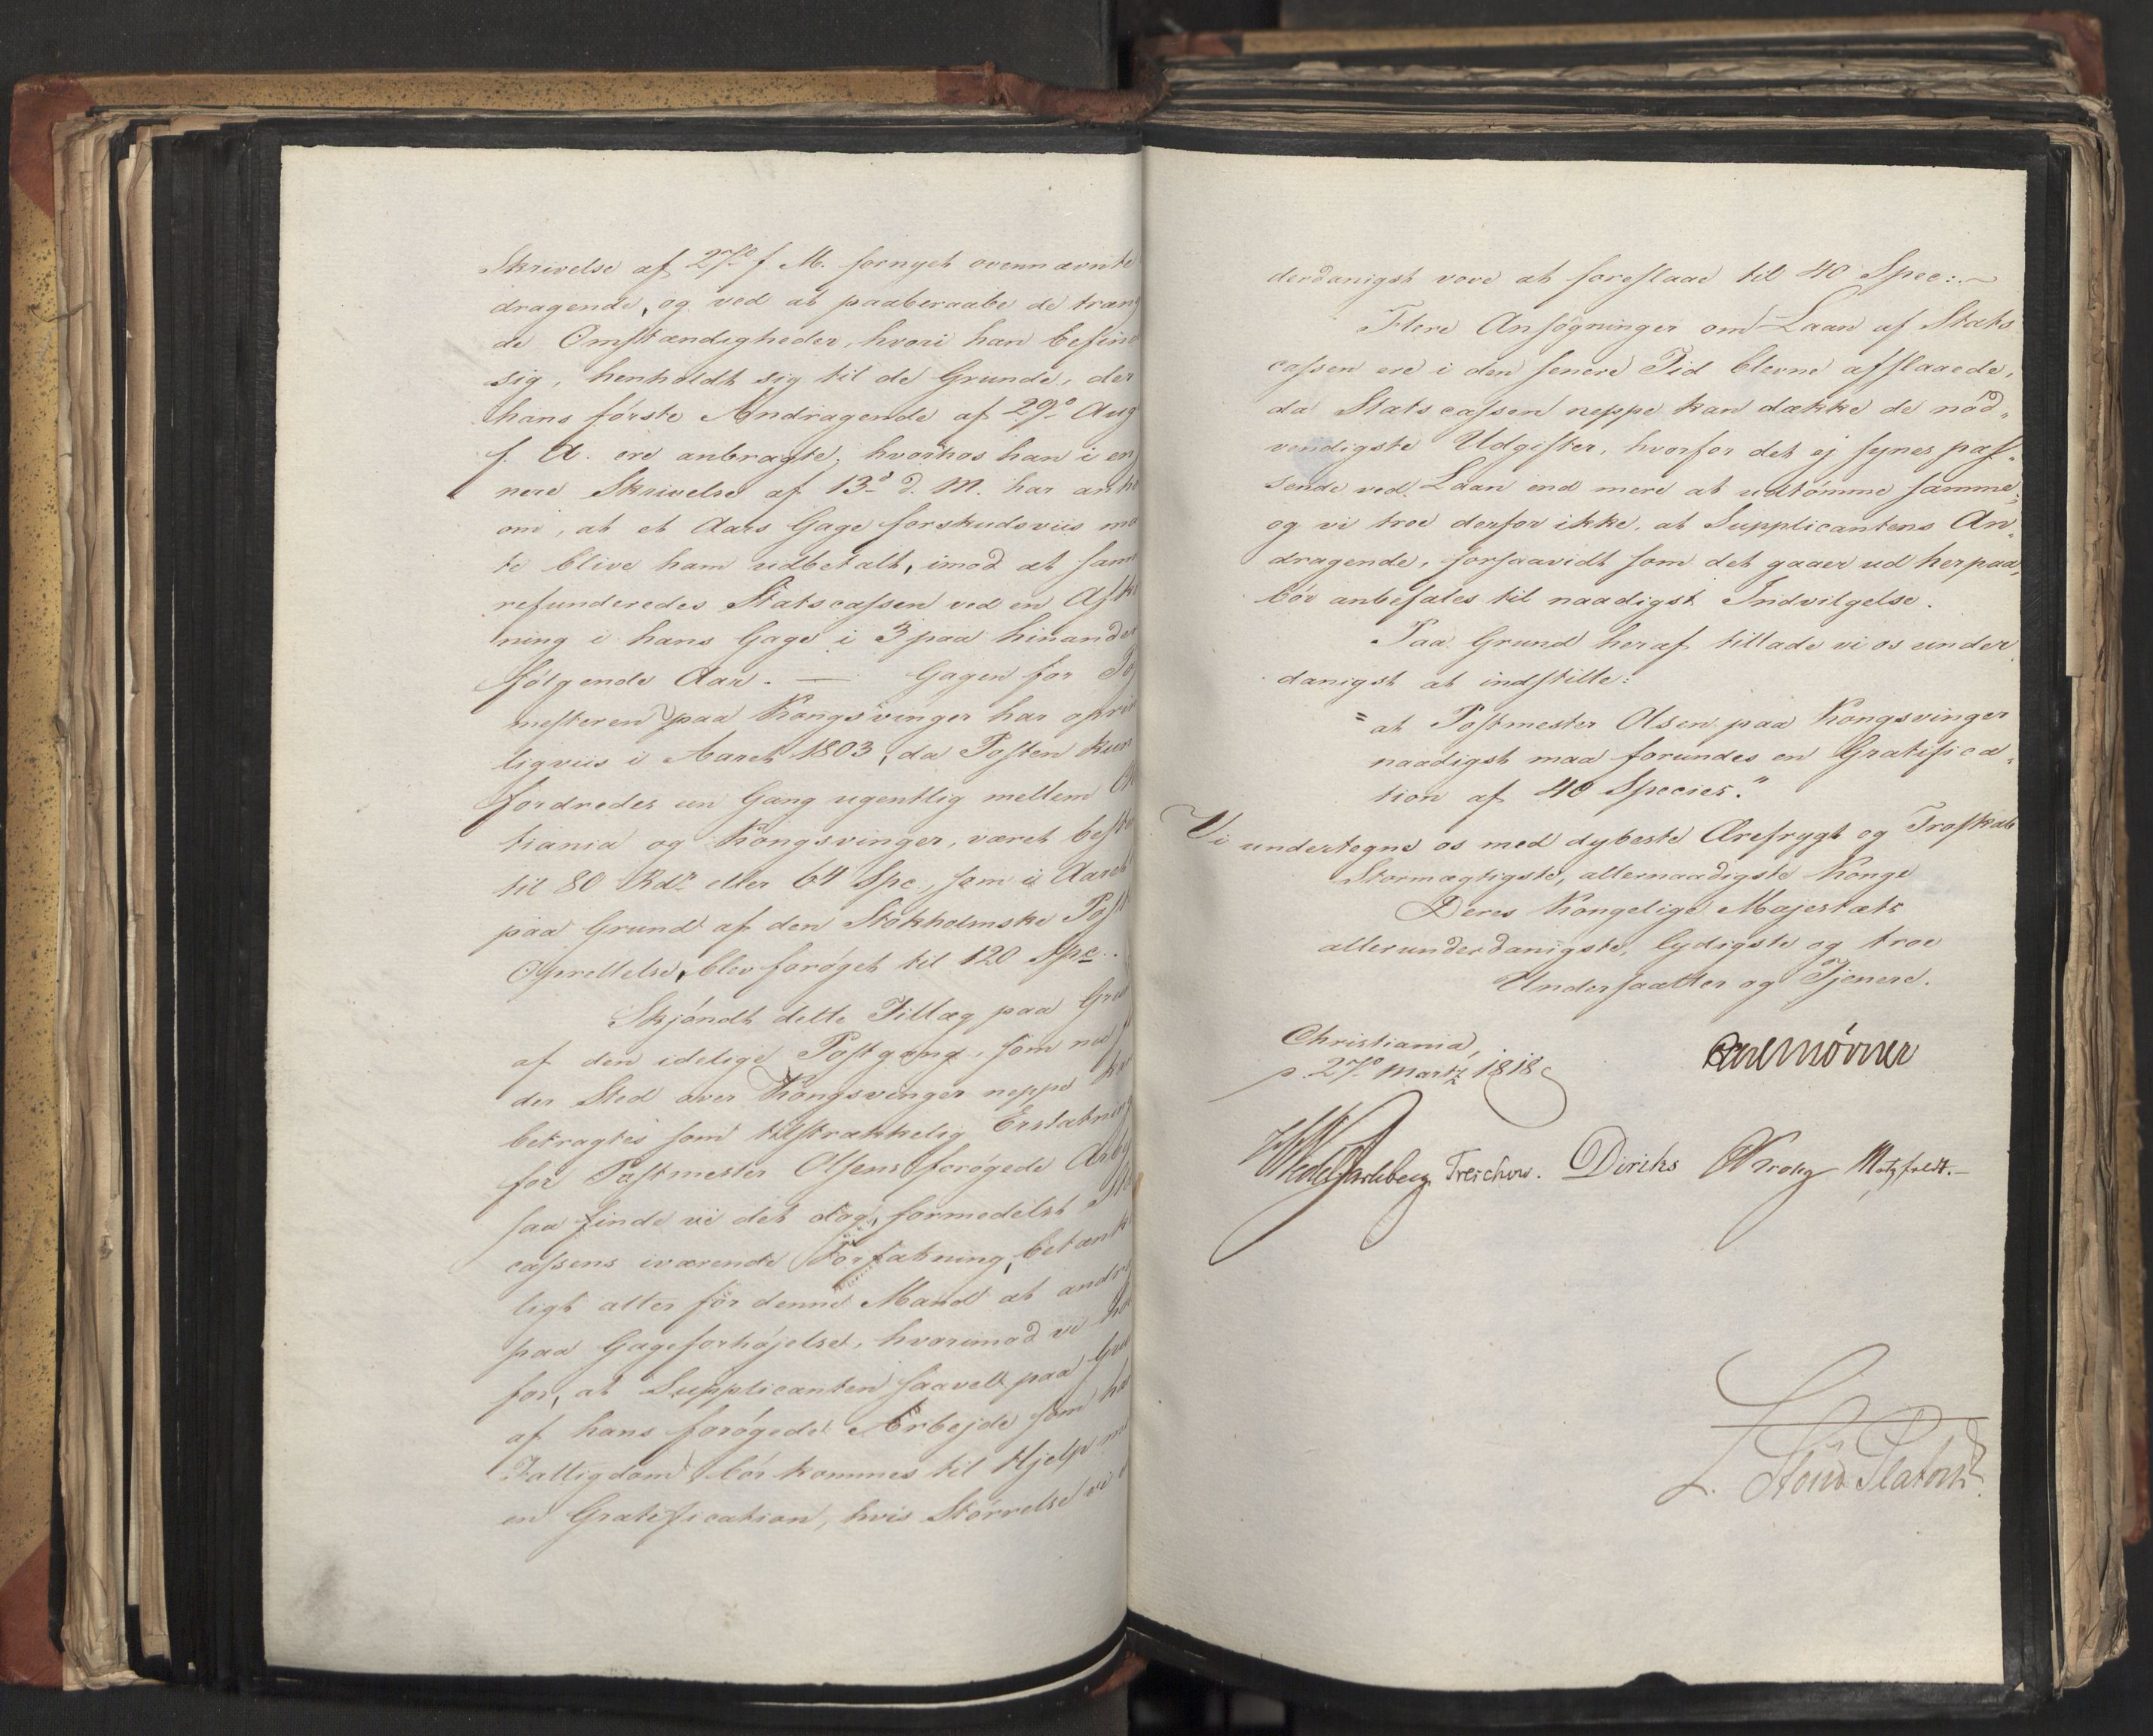 Skrivelse af 27de f. M. fornyet ovennævnte
dragende, og ved at paaberaabe de træng
de Omstændigheder, hvori han befind
sig, henholdt sig til de Grunde, der
hans første Andragende af 29de Aug
f. A. ere anbragte; hvorhos han i en
nere Skrivelse af 13de d. M. har anho
om, at et Aars Gage forskudsviis maa
te blive ham udbetalt, imod at sam
refunderedes Statscassen ved en Afko
ning i hans Gage i 3 paa hinanden
følgende Aar. — Gagen for Po
mesteren paa Kongsvinger har oprin
ligviis i Aaret 1803, da Posten kun
fordredes en Gang ugentlig mellem Ch
tiania og Kongsvinger, været beste
til 80 Rdr eller 64 Spc., som i Aaret
paa Grund af den Stokholmske Post
Oprettelse, blev forøget til 120 Spc.
Skjøndt dette Tillæg paa Grun
af den idelige Postgang, som nu
der Sted over Kongsvinger neppe ka
betragtes som tilstrækkelig Erstatning
for Postmester Olsens forøgede Arbej
saa finde vi det dog, formedelst Sta
cassens iværende Forfatning, betænk
ligt atter for denne Mand at andra
paa Gageforhøjelse, hvorimod vi ho
for, at Supplicanten saavel paa Grun
af hans forøgede Arbejde som ha
Fattigdom bør kommes til Hjelp m
en Gratification, hvis Størrelse vi
derdanigst vove at foreslaae til 40 Spec:
Flere Ansøgninger om Laan af Stats
cassen ere i den senere Tid blevne afslaaede,
da Statscassen neppe kan dække de nød-
vendigste Udgifter, hvorfor det ej synes pas-
sende ved Laan end mere at udtømme samme;
og vi troe derfor ikke, at Supplicantens An-
dragende, forsaavidt som det gaaer ud herpaa,
bør anbefales til naadigst Indvilgelse.
Paa Grund heraf tillade vi os under
danigst at indstille:
"at Postmester Olsen paa Kongsvinger
naadigst maa forundes en Gratifica-
tion af 40 Species."
Vi undertegne os med dybeste Ærefrygt og Troskab
Stormægtigste, allernaadigste Konge
Deres Kongelige Majestæts
allerunderdanigste, lydigste og troe
Undersaatter og Tjenere.
Christiania,
d. 27de Martz 1818
Carl Mörner
Wedel Jarlsberg Treschow. Diriks Krog Motzfeldt.
L. Stoud Platou